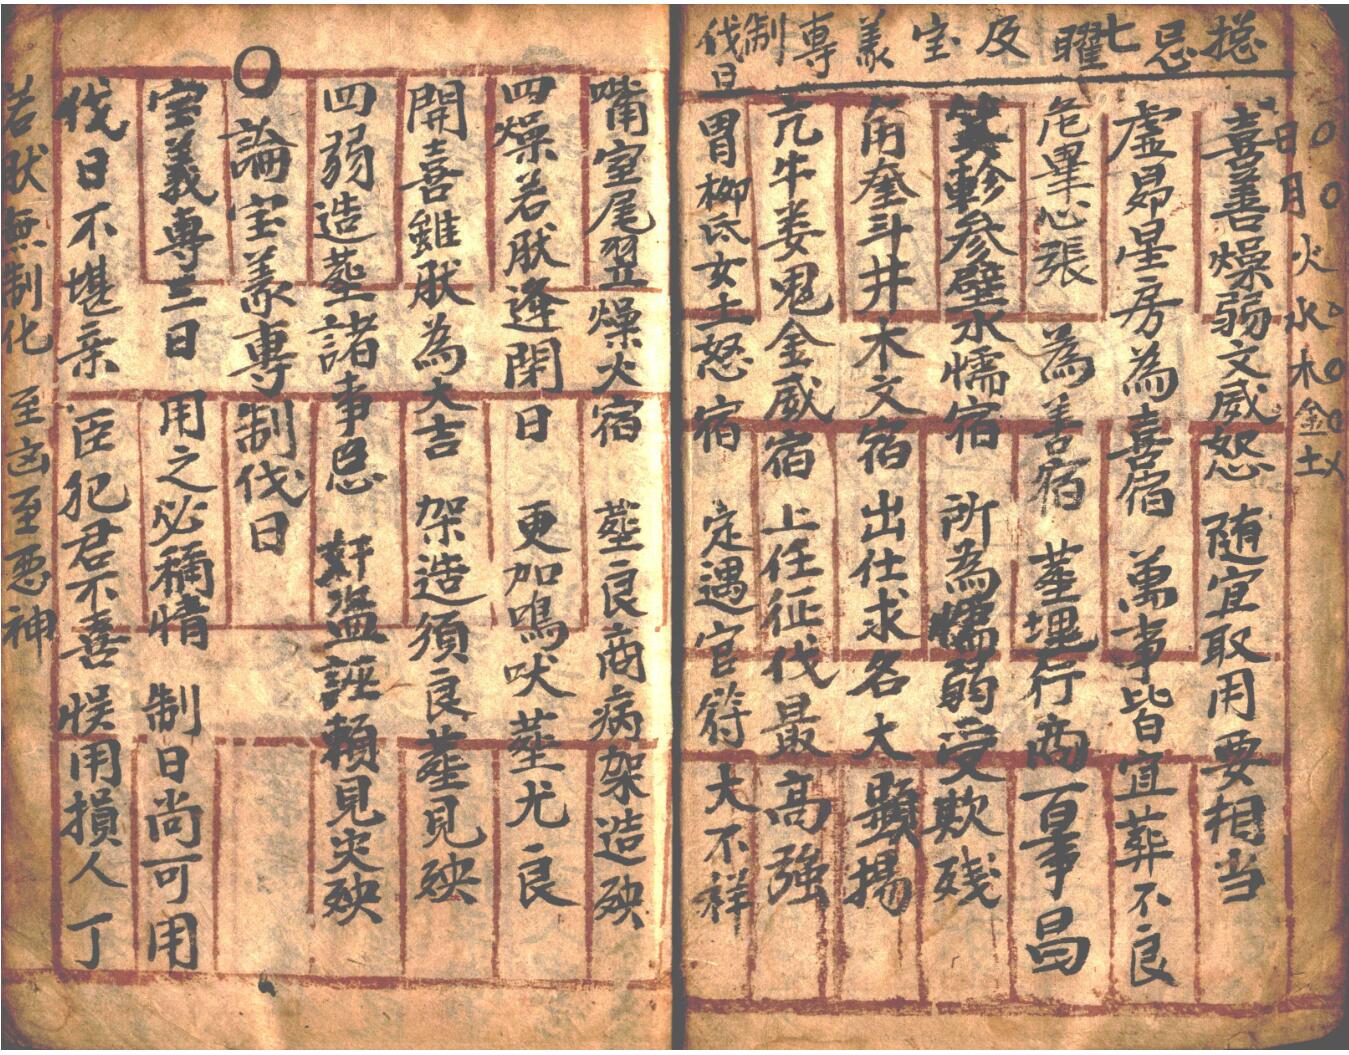 捴忌七曜及宝義專制伐日
日月火水木金土
喜善燥弱文威怒 随宜取用要相当
虚昴星房為喜宿 萬事皆宜葬不良
危畢心張為善宿 葬埋行商百事昌
箕軫参壁水懦宿 所為懦弱受欺残
角奎斗井木文宿 出仕求名大顕揚
亢牛娄鬼金威宿 上任征伐最高強
胃柳氐女土怒宿 定遇官符大不祥
嘴室尾翌燥火宿 葬良商病架造殃
四燥若猒逢閉日 更加鳴吠葬尤良
開喜雞猒為大吉 架造須良葬見殃
四弱造葬諸事忌 奸盗誣賴見灾殃
〇論宝義專制伐日
宝義專三日 用之必稱情 制日尚可用
伐日不堪亲 臣犯君不喜 悮用損人丁
若猒無制化 至凶至悪神